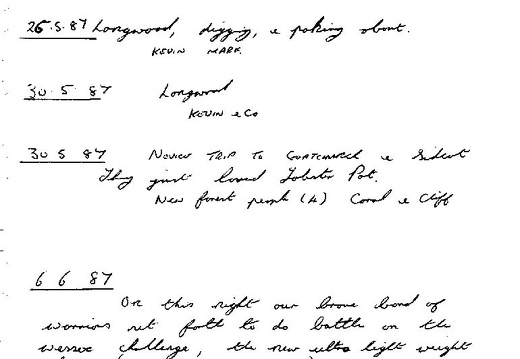 25.5.87 Longwood, digging, & poking about.
KEVIN MARK.
30 5 87 Longwood
KEVIN & Co
30 5 87 NOVICE TRIP TO GOATCHURCH & Sidcot
They just loved Lobster Pot.
New forest people (4) Carol & Cliff
6 6 87
On this night our brave band of
warriors set forth to do battle on the
wessex challenge, the new ultra light weight